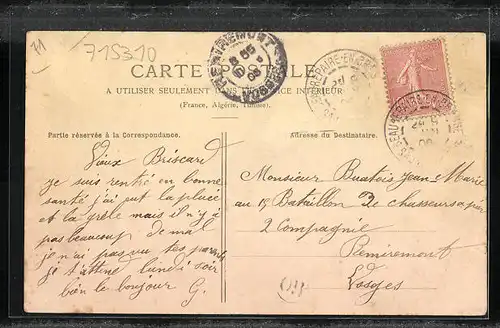 71
715310
CARTE POSTALE
A UTILISER SEULEMENT DANS LE SERVICE INTÉRIEUR
(France, Algérie, Tunisie).
Partie réservée à la Correspondance.
Adresse du Destinataire.
REMIREMONT
Vieux Briscard
je suis rentré en bonne
santé j'ai put la pluce
et la grêle mais il n'y à
pas beaucoup de mal
je n'ai pas vu tes parents
je t'attend lundi soir
bon le bonjour G.
Monsieur Buatois Jean-Marie
au 15 Bataillon de chasseurs a pied
2 Compagnie
Remiremont
Vosges